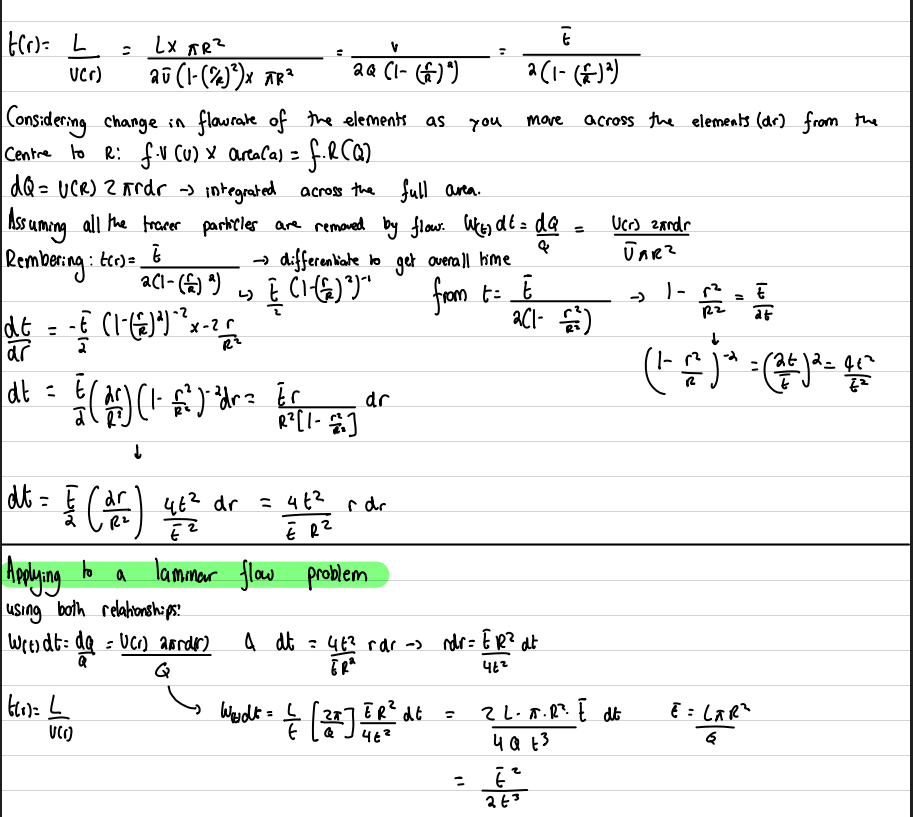 t(r) = L / U(r) = L × πR² / 2ū (1-(r/R)²) × πR² = V / 2Q (1-(r/R)²) = t̄ / 2(1-(r/R)²)
Considering change in flowrate of the elements as you move across the elements (dr) from the
Centre to R: f.V (U) × area(a) = f.R(Q)
dQ = U(R) 2πrdr → integrated across the full area.
Assuming all the tracer particles are removed by flow. W(t) dt = dQ / Q = U(r) 2πrdr / Ū π R²
Rembering: t(r) = t̄ / 2(1-(r/R)²) → differentiate to get overall time
↳ t̄/2 (1-(r/R)²)⁻¹
from t = t̄ / 2(1- r²/R²) → 1 - r²/R² = t̄/2t
dt/dr = -t̄/2 (1-(r/R)²)⁻² × -2 r/R²
↓
(1 - r²/R)⁻² = (2t/t̄)² = 4t²/t̄²
dt = t̄/2 (2r/R²) (1- r²/R²)⁻² dr = t̄ r / R²[1- r²/R²] dr
↓
dt = t̄/2 (2r/R²) 4t²/t̄² dr = 4t² / t̄ R² r dr
Applying to a laminar flow problem
using both relationships:
W(t) dt = dQ/Q = U(r) 2πrdr) / Q & dt = 4t² / t̄R² rdr → rdr = t̄ R² / 4t² dt
t(r) = L / U(r) → W(t)dt = L/t [2π/Q] t̄ R² / 4t² dt = 2 L. π. R². t̄ / 4 Q t³ dt t̄ = LπR² / Q
= t̄² / 2t³